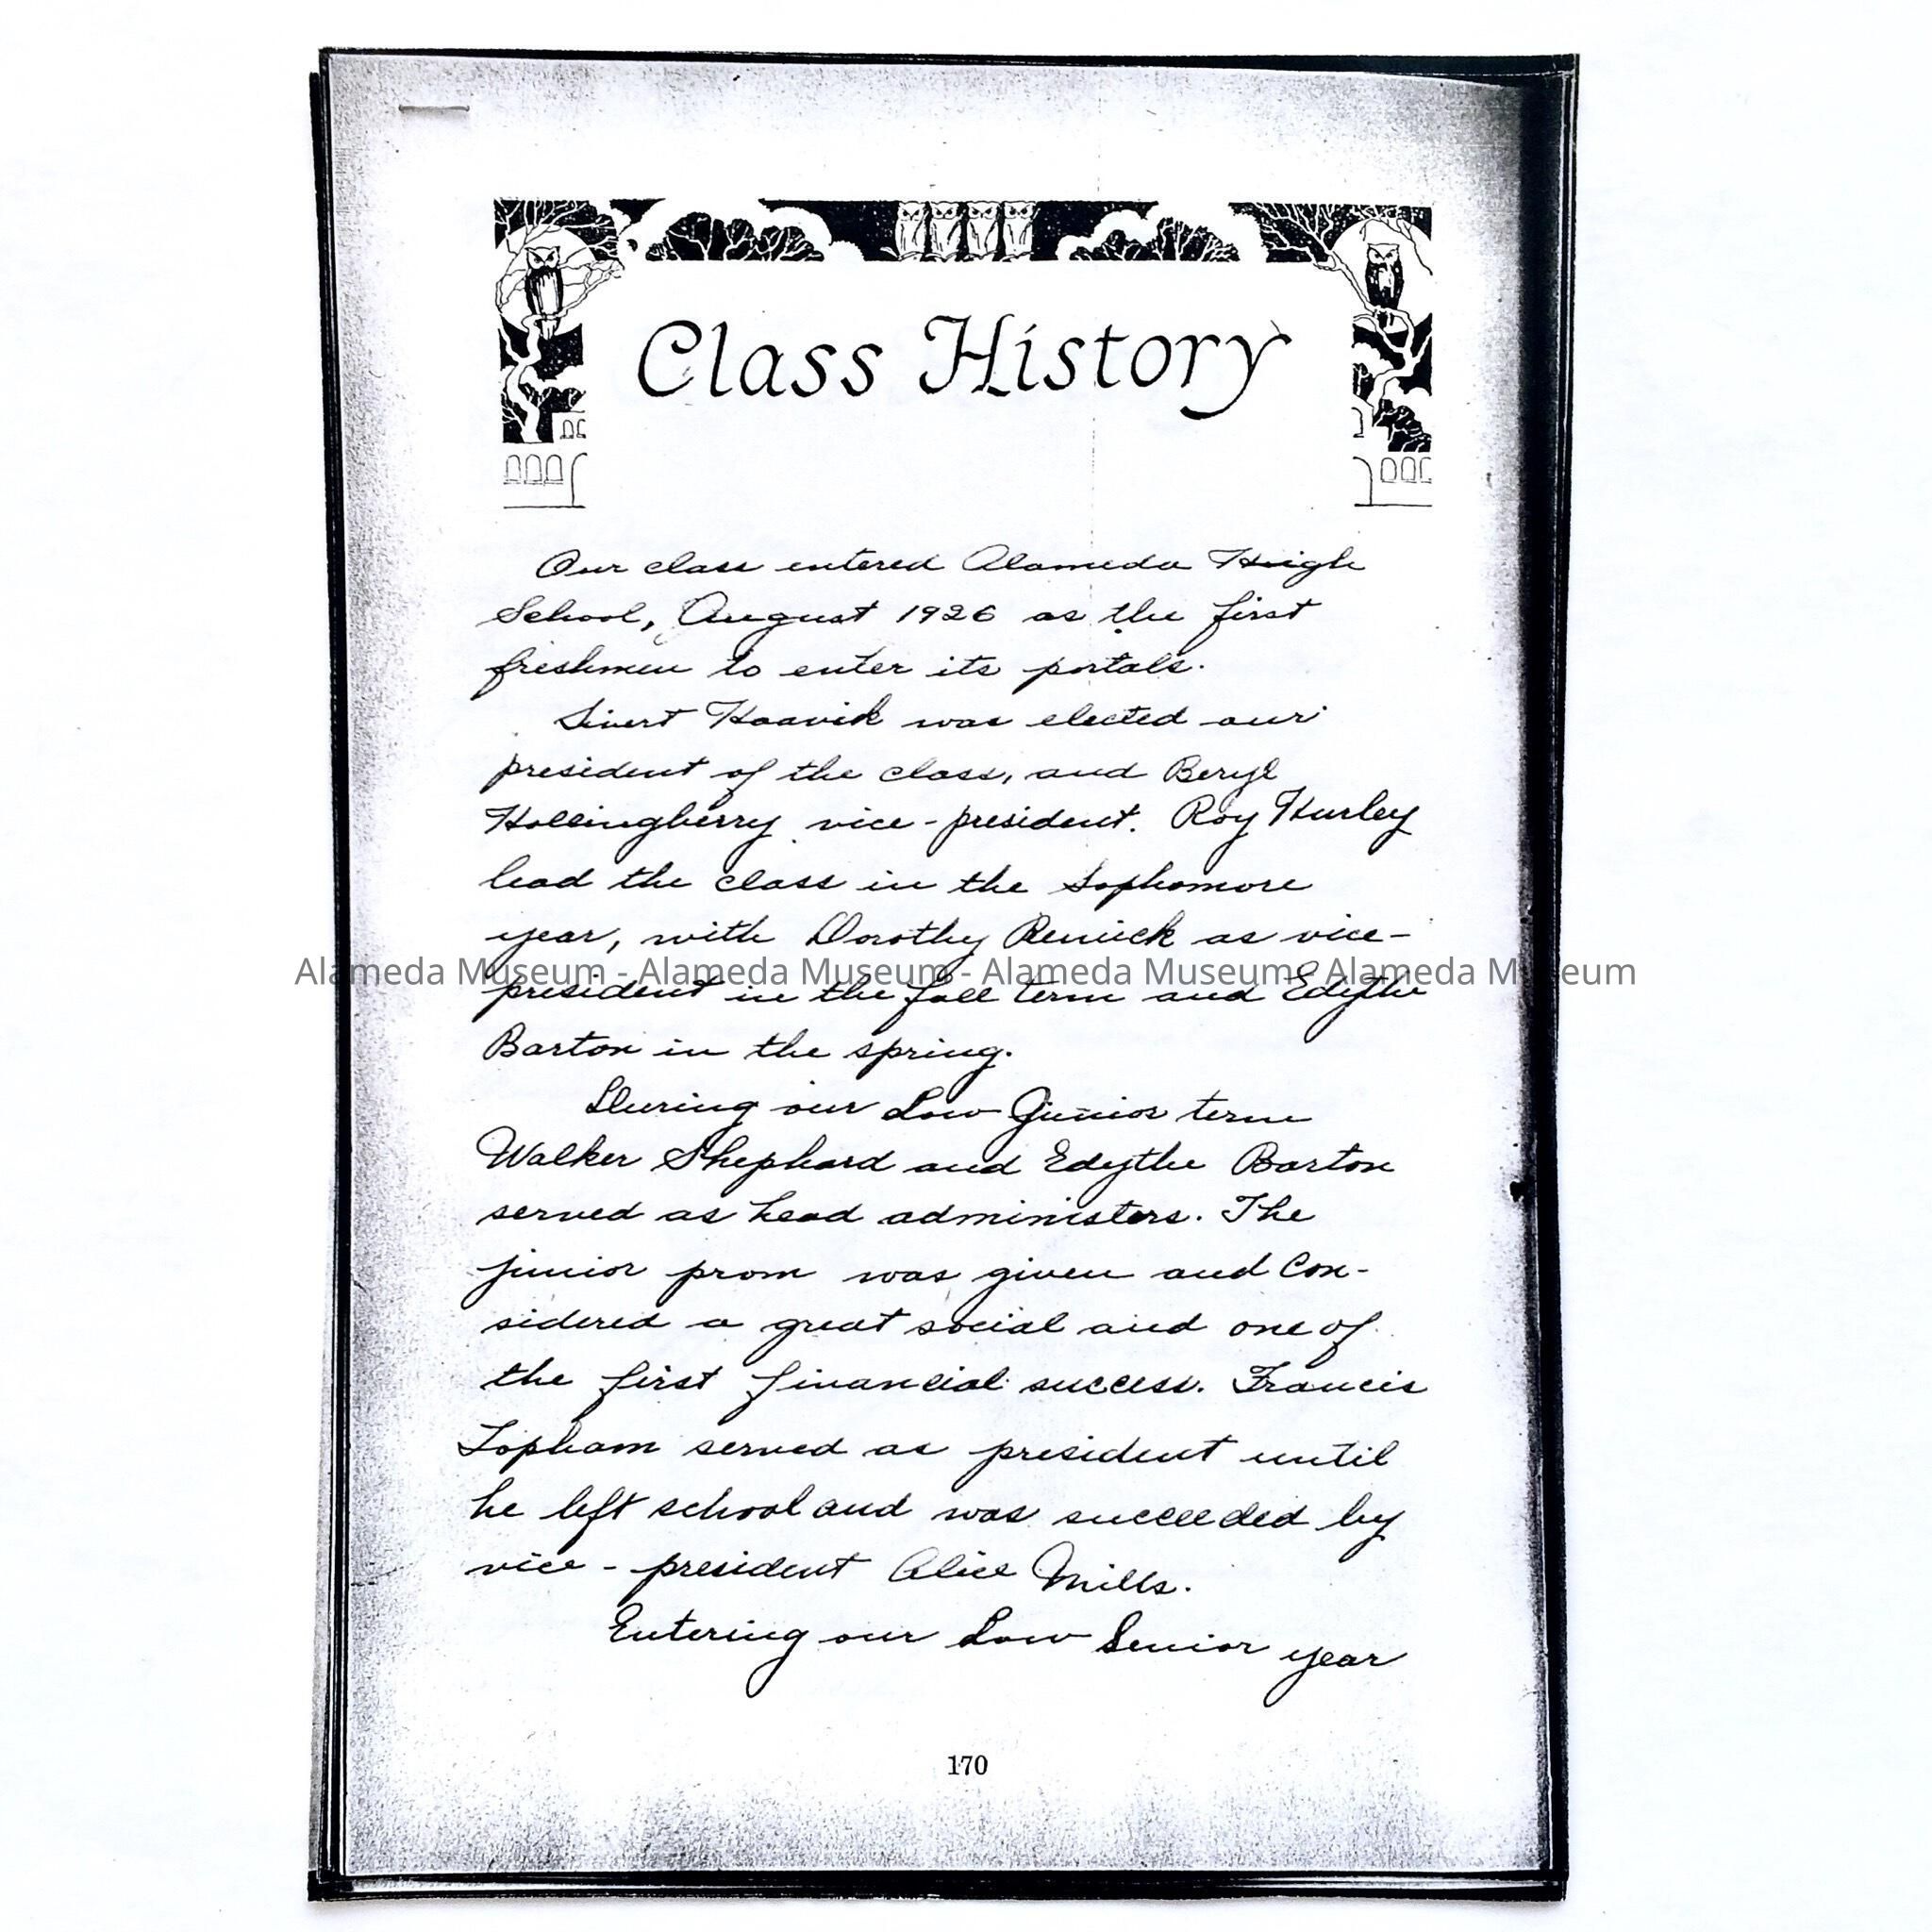 Class History
Our class entered Alameda High
School, August 1926 as the first
freshmen to enter its portals.
Sivert Haavik was elected our
president of the class, and Beryl
Hollingberry vice-president. Roy Hurley
lead the class in the Sophomore
year, with Dorothy Renick as vice-
Alameda Museum - Alameda Museum - Alameda Museum - Alameda Museum
president in the fall term and Edythe
Barton in the spring.
During our Low Junior term
Walker Shephard and Edythe Barton
served as head administers. The
junior prom was given and con-
sidered a great social and one of
the first financial success. Francis
Topham served as president until
he left school and was succeeded by
vice-president Alice Mills.
Entering our Low Senior year
170